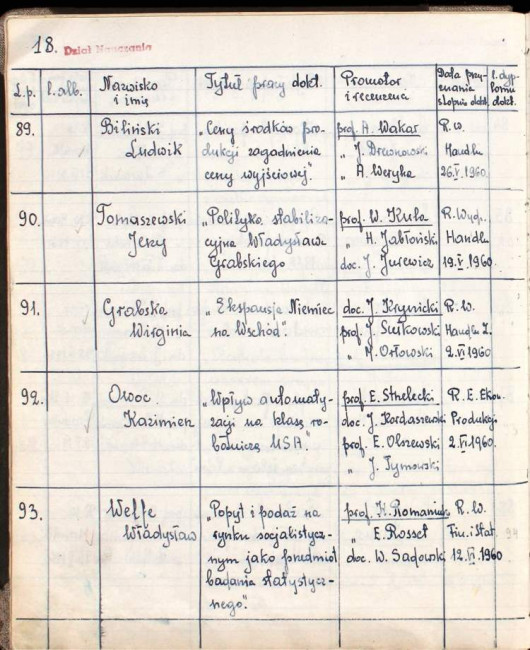 18. Dział Nauczania
L.p. l. alb. Nazwisko i imię Tytuł pracy dokt. Promotor i recenzenci Data przyznania stopnia dokt. l. dyplomu dokt.
89. Biliński „Ceny środków pro- prof. A. Wakar R. W.
Ludwik dukcji zagadnienia „ J. Drewnowski Handlu
ceny wyjściowej". „ A. Weryha 26.V.1960.
90. Tomaszewski „Polityka stabiliza- prof. W. Kula R. Wydz.
Jerzy cyjna Władysława „ H. Jabłoński Handlu
Grabskiego doc. J. Jurewicz 19.V.1960.
91. Grabska „Ekspansja Niemiec doc. J. Krynicki R. W.
Wirginia na Wschód". prof. J. Sutkowski Handlu Z.
„ M. Orłowski 2.VI.1960
92. Owoc „Wpływ automaty- prof. E. Strzelecki R. E. Ekon.
Kazimierz zacji na klasę ro- doc. J. Kordaszewski Produkcji
botniczą USA". prof. E. Olszewski 2.VI.1960.
„ J. Tymowski
93. Welfe „Popyt i podaż na prof. K. Romaniuk R. W.
Władysław rynku socjalistycz- „ E. Rosset Fin. i Stat.
nym jako przedmiot doc. W. Sadowski 12.VI.1960
badania statystycz-
nego".